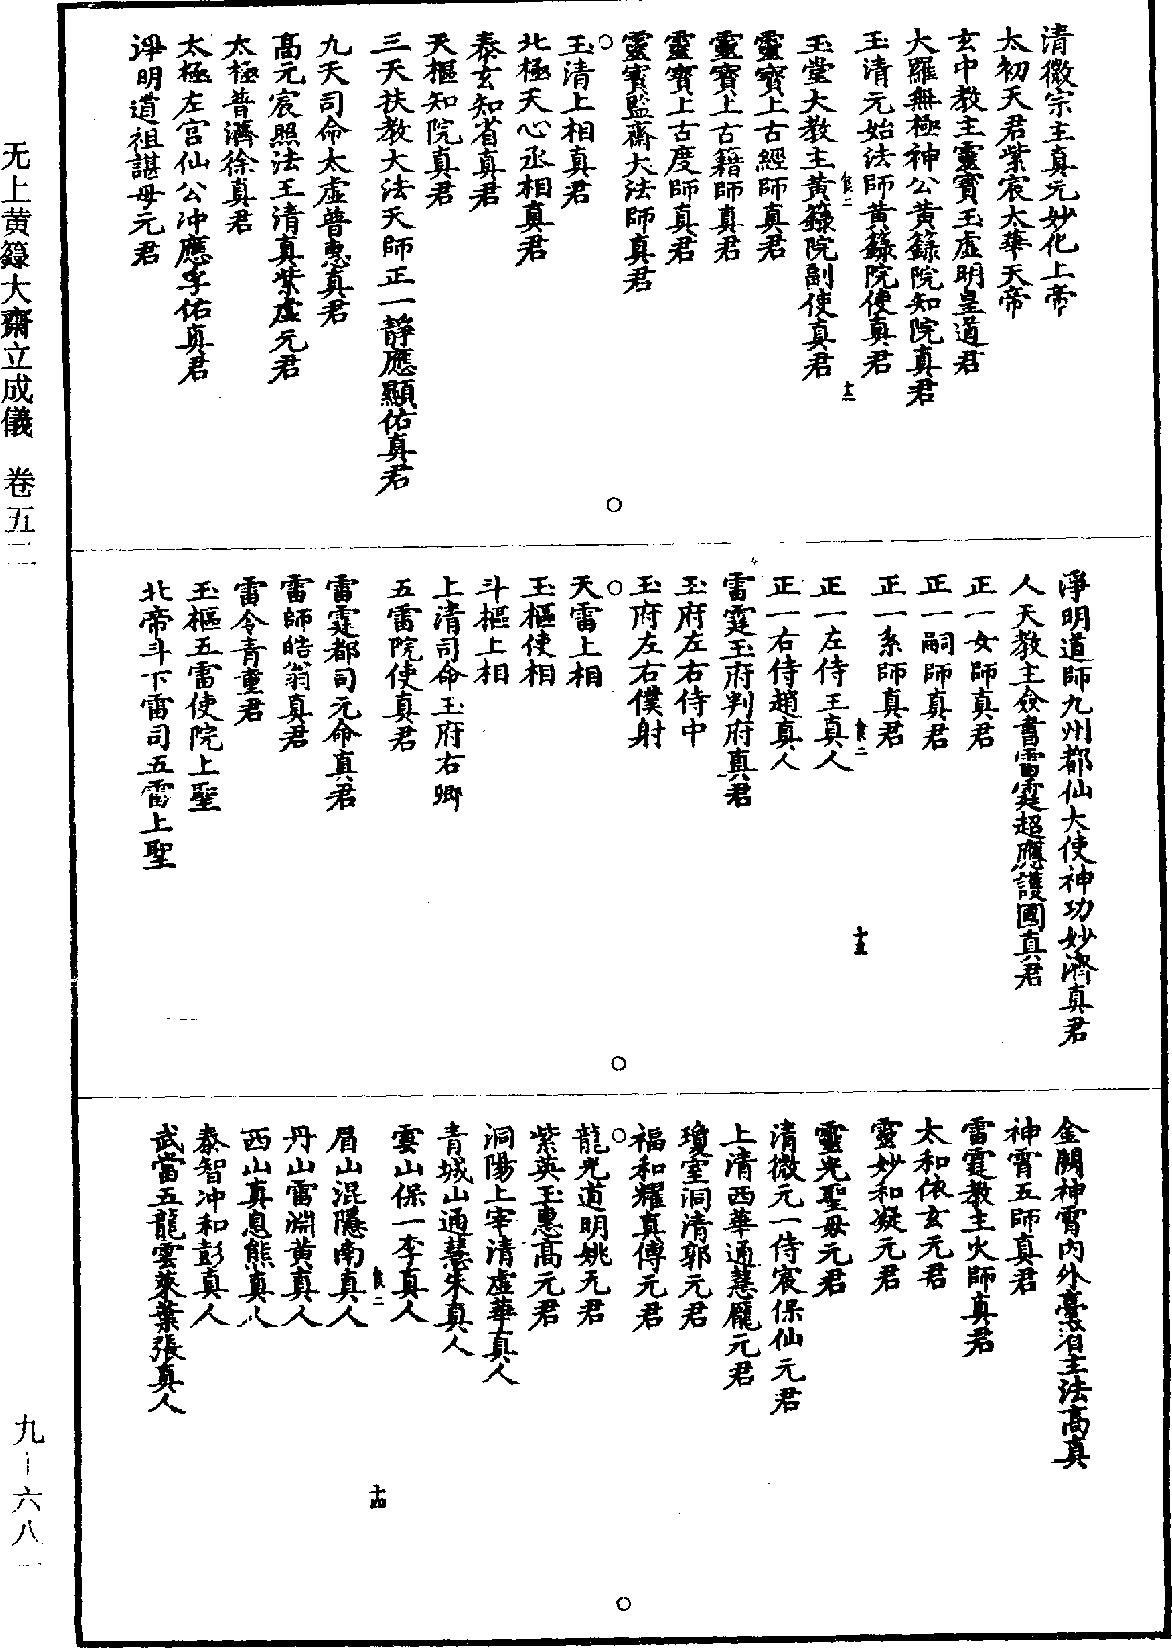 清微宗主真元妙化上帝
太初天君紫宸太華天帝
玄中教主靈寶玉虛明皇道君
大羅無極神公黃籙院知院真君
玉清元始法師黃籙院使真君
玉堂大教主黃籙院副使真君
靈寶上古經師真君
靈寶上古籍師真君
靈寶上古度師真君
靈寶監齋大法師真君
玉清上相真君
北極天心丞相真君
泰玄知省真君
天樞知院真君
三天扶教大法天師正一靜應顯佑真君
九天司命太虛普惠真君
高元宸照法王清真紫虛元君
太極普濟徐真君
太極左宮仙公沖應孚佑真君
淨明道祖諶母元君
淨明道師九州都仙大使神功妙濟真君
人天教主僉書雷霆超應護國真君
正一女師真君
正一嗣師真君
正一系師真君
正一左侍王真人
正一右侍趙真人
雷霆玉府判府真君
玉府左右侍中
玉府左右僕射
天雷上相
玉樞使相
斗樞上相
上清司命玉府右卿
五雷院使真君
雷霆都司元命真君
雷師皓翁真君
雷令青童君
玉樞五雷使院上聖
北帝斗下雷司五雷上聖
金闕神霄內外臺省主法高真
神霄五師真君
雷霆教主火師真君
太和依玄元君
靈妙和凝元君
靈光聖母元君
清微元一侍宸保仙元君
上清西華通慧龐元君
瓊室洞清郭元君
福和耀真傅元君
龍光道明姚元君
紫英玉惠高元君
洞陽上宰清虛華真人
青城山通慧朱真人
雲山保一李真人
眉山混隱南真人
丹山雷淵黃真人
西山真息熊真人
泰智沖和彭真人
武當五龍雲萊葉張真人
无上黄籙大齋立成儀　卷五二
九－六八一
十三
十四